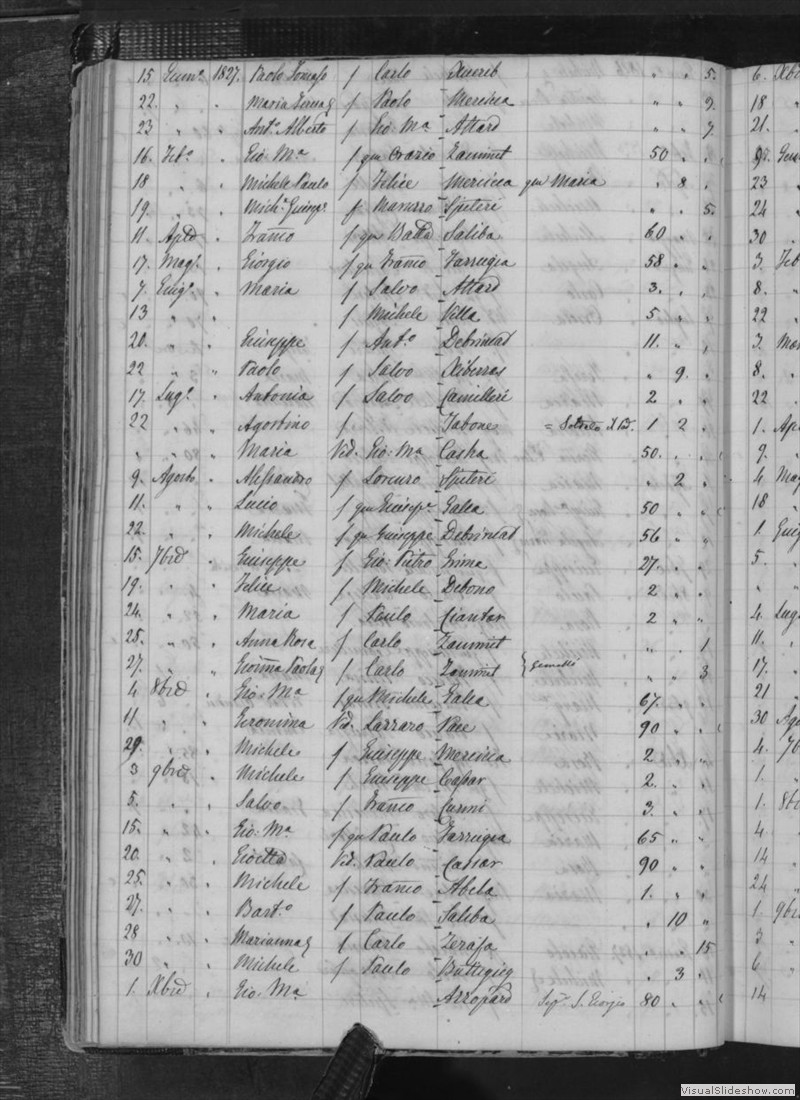 15. Genn.o 1827. Paolo Tomaso f Carlo Xuerib " " 5.
22. " " Maria f Paolo Mercieca " " 9.
23 " " Ant.o Alberto f Gio Ma Attard " " 7.
16. Feb.o " Gio. Ma f qm Orazio Zammit 50 " "
18 " " Michele Paolo f Felice Mercieca qm Maria " 8 "
19. " " Mich.e Giusep.e f Spiteri " " 5.
11. Aple " Franco f qm Batta Saliba 60 " "
17. Mag.o " Giorgio f qm Franco Farrugia 58 " "
7. Giug.o " Maria f Salvo Attard 3. " "
13 " " f Michele Villa 5. " "
20. " " Giuseppe f Ant.o Debrincat 11. " "
22 " " Paolo f Salvo Xiberras " 9. "
17. Lug.o " Antonia f Salvo Camilleri 2 " "
22 " Agostino f Tabone = 1 2 "
" " Maria Vid. Gio: Ma Casha 50. " "
9. Agosto " Alessandro f Lorenzo Spiteri " 2 "
11. " " Lucio f qm Giusep.e Galea 50 " "
22. " " Michele f qm Giuseppe Debrincat 56 " "
15. 7bre " Giuseppe f Gio: Pietro Grima 27. " "
19. " " Felice f Michele Debono 2 " "
24. " " Maria f Paolo Ciantar 2 " "
25. " " Anna Rosa f Carlo Zammit " " 1
27. " " Paola f Carlo Zammit } gemelle " " 3
4 8bre " Gio. Ma f qm Michele Galea 67. " "
11 " " Geronima Vid. Lazzaro Pace 90 " "
29. " " Michele f Giuseppe Mercieca 2 " "
3 9bre " Michele f Giuseppe Caspar 2. " "
5. " " Salvo f Franco Curmi 3. " "
15. " " Gio: Ma f qm Paulo Farrugia 65 " "
20. " " Vid. Paulo Cassar 90 " "
25. " " Michele f Franco Abela 1. " "
27. " " Bart.o f Paulo Saliba " 10 "
28 " " Marianna f Carlo Zerafa " " 15
30 " " Michele f Paulo Buttigieg " 3 "
1. Xbre " Gio. Ma Arropard S. Giorgio 80 " "
6. Xbre
18 "
21. "
23 "
24 "
30 "
3. Feb
8. "
22 "
3. Mar
8. "
22 "
1. Ap
9. "
4 Mag
18 "
1. Giug
5. "
" "
4. Lug
11. "
17. "
21 "
30 Ag
4. 7b
1. "
1. 8b
4. "
14 "
24 "
1. 9b
3 "
6 "
14
VisualSlideshow.com